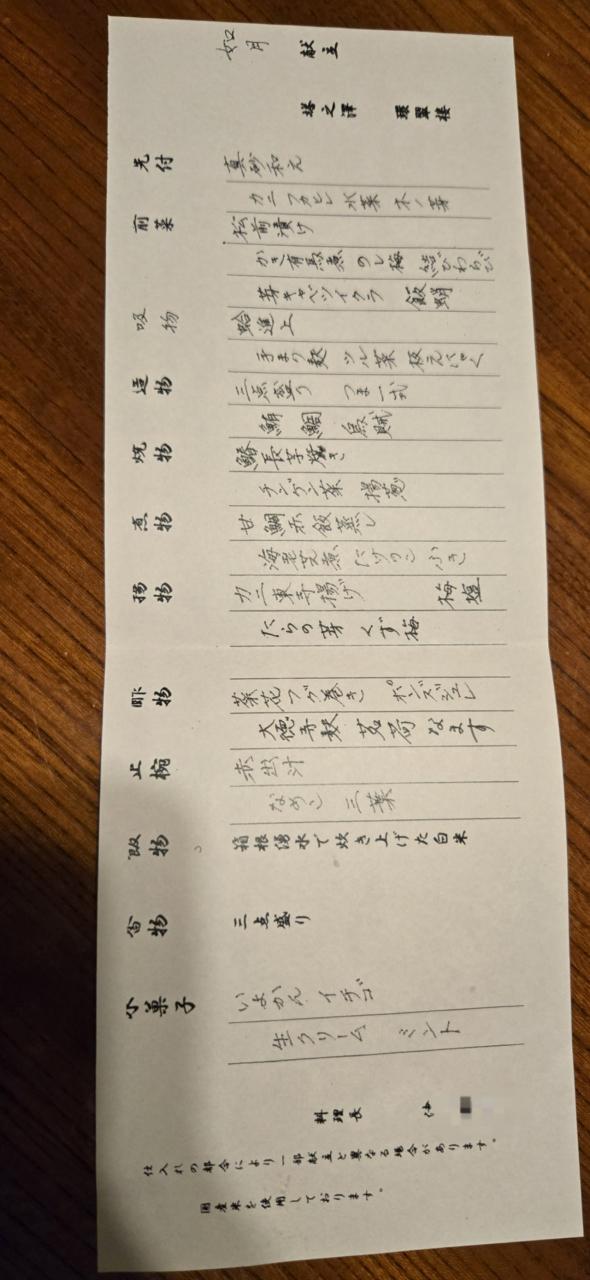 如月 献立
塔之澤 環翠楼
先付 真砂和え
カニ フカヒレ 水菜 木ノ芽
前菜 松前漬け
かき有馬煮 のし梅 結びわらび
芽キャベツイクラ 飯蛸
吸物 蛤進上
手まり麩 ツル菜 板えにゃく
造物 三点盛り つま一式
鮪 鯛 魚賊
焼物 鰆長芋焼き
チンゲン菜 揚葱
煮物 甘鯛赤飯蒸し
海老芝煮 たけのこ ふき
揚物 カニ東寺揚げ 梅塩
たらの芽 くず梅
酢物 菜花フグ巻き ポンズジュレ
大徳寺麩 茗荷 なます
止椀 赤出汁
なめこ 三葉
飯物 箱根湧水で炊き上げた白米
香物 三点盛り
小菓子 いよかん イチゴ
生クリーム ミント
料理長
仕入れの都合により一部献立と異なる場合があります。
国産米を使用しております。